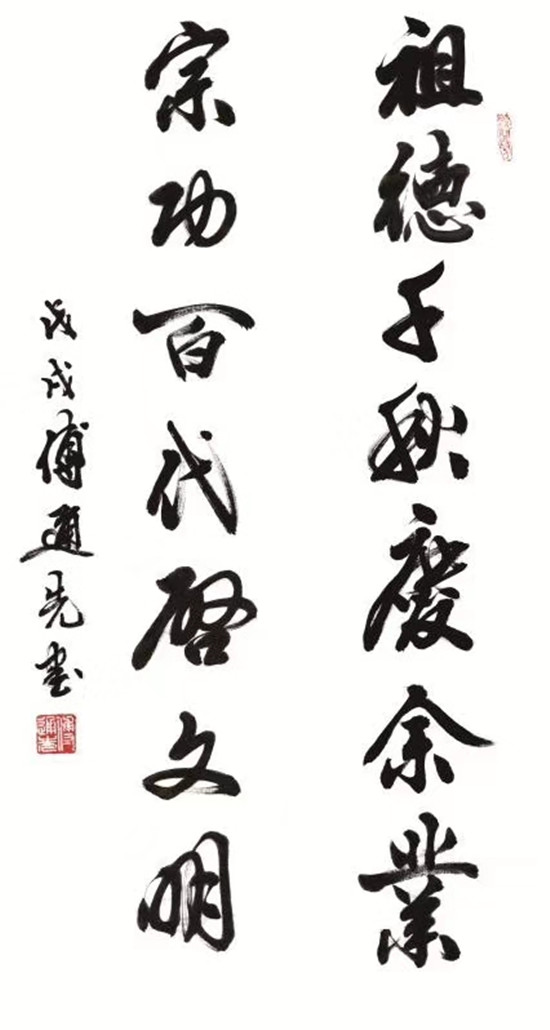 祖德千秋慶余業
宗功百代啓文明
戊戌傅通先书